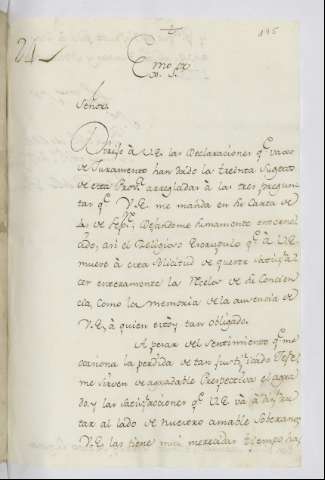 195
24
Exmo. Sr.
Señor
Dirijo à V.E. las Declaraciones qe. vaxo
de Juramento han dado los treinta Sugetos
de esta Prova. arregladas à las tres pregun-
tas qe. V.E. me manda en su Carta de
de Sepre.; Dejandome sumamente enterne-
cido, asi el Religioso Escrupulo qe. à V.E.
mueve à esta solicitud de querer
cer enteramente los de su Concien-
cia, como la memoria de la ausencia de
V.E. à quien estoy tan obligado.
A pesar del sentimiento qe. me
ocasiona la perdida de tan Jefe,
me sirven de agradable Perspectiva el agra-
do, y las satisfacciones qe. V.E. và à disfru-
tar al lado de nuestro amable Soberano.
V.E. las tiene mui merecidas tiempo ha,